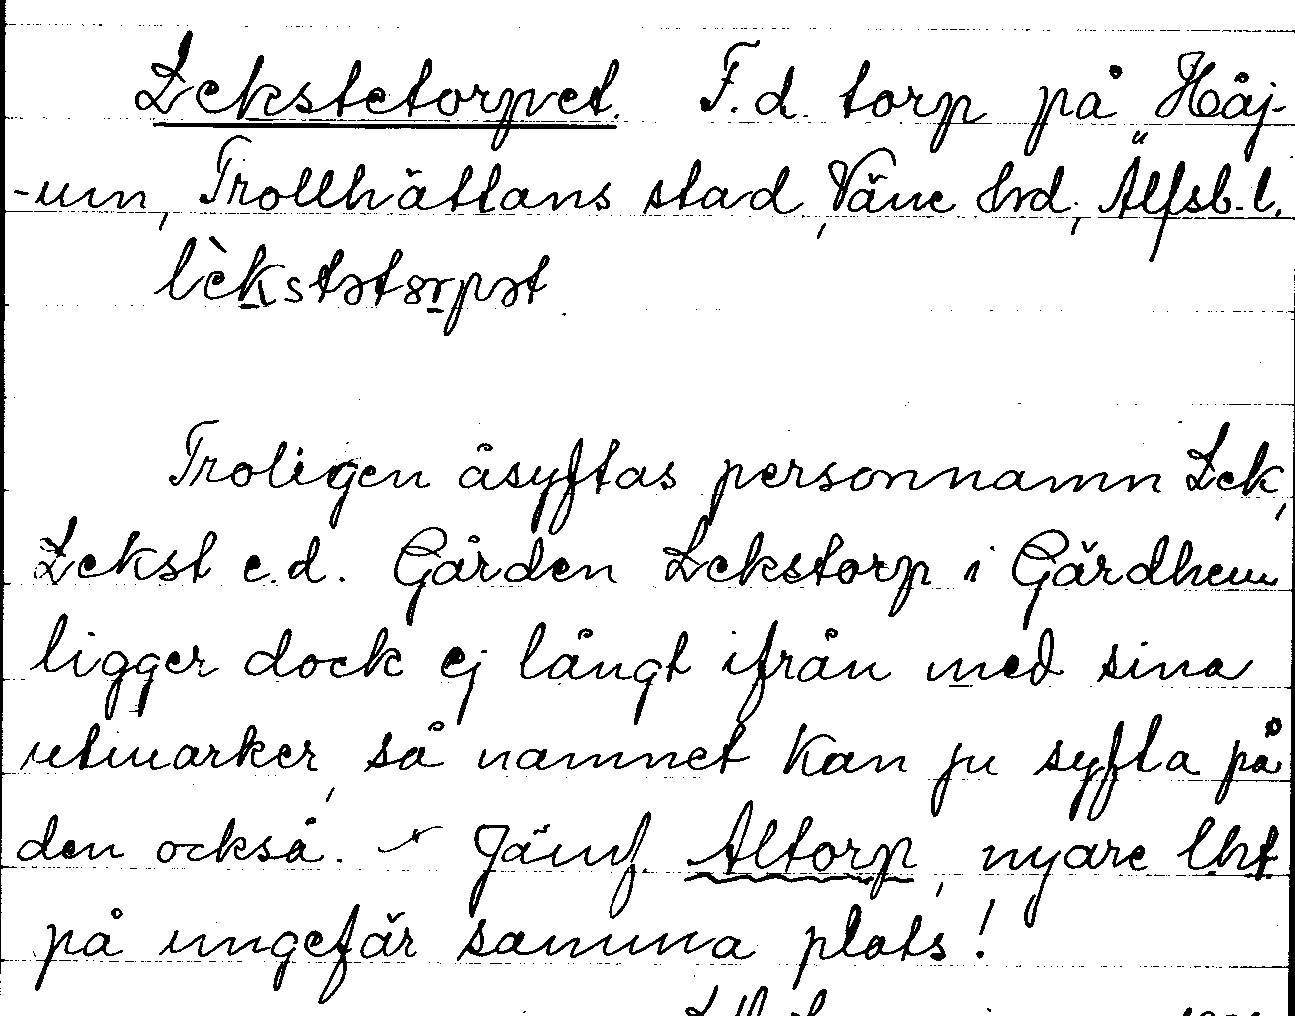 Lekstetorpet. F.d. torp på Håj-
-um, Trollhättans stad, Väne hrd, Älfsb. l.
lèkstətɔrpət.
Troligen åsyftas personnamn Lek,
Lekst e.d. Gården Lekstorp i Gärdhem
ligger dock ej långt ifrån med sina
utmarker, så namnet kan ju syfta på
den också. - Jämf. Altorp, nyare lht
på ungefär samma plats!